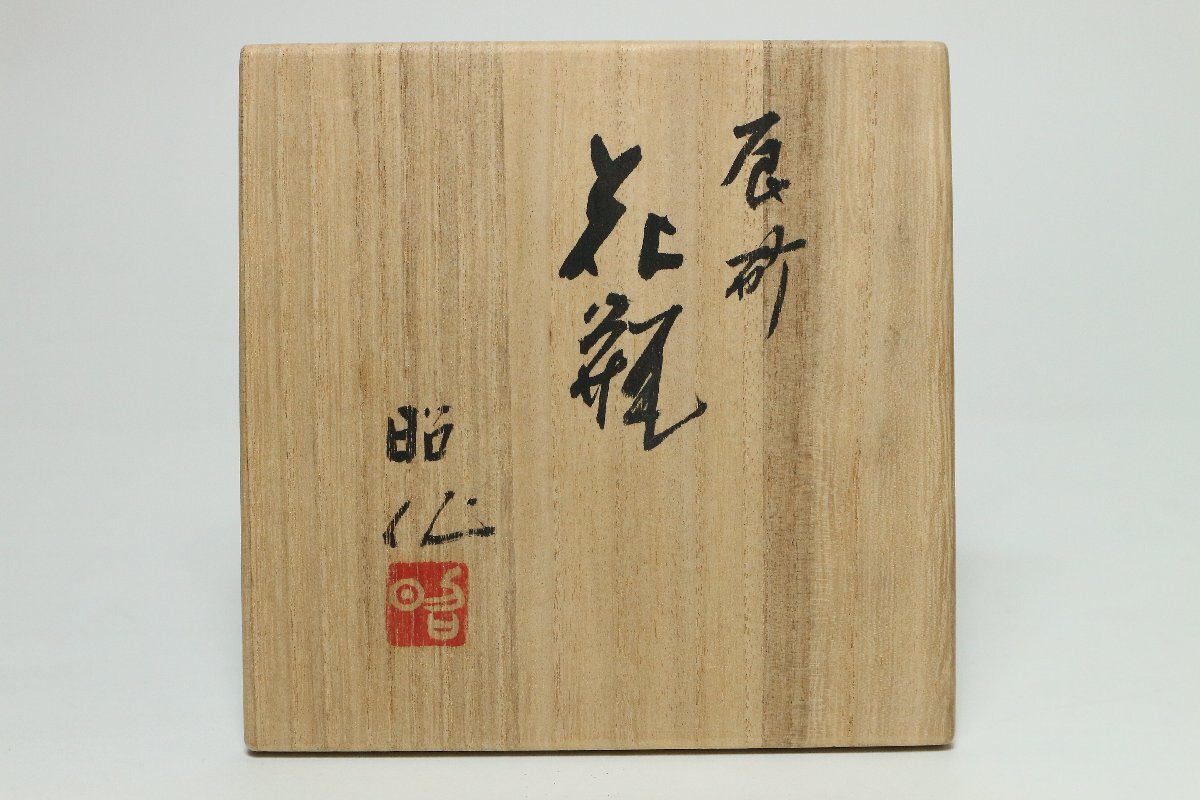 辰砂
花瓶
昭作
昭